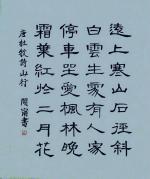 遠上寒山石徑斜
白雲生處有人家
停車坐愛楓林晚
霜葉紅於二月花
唐杜牧詩山行 書